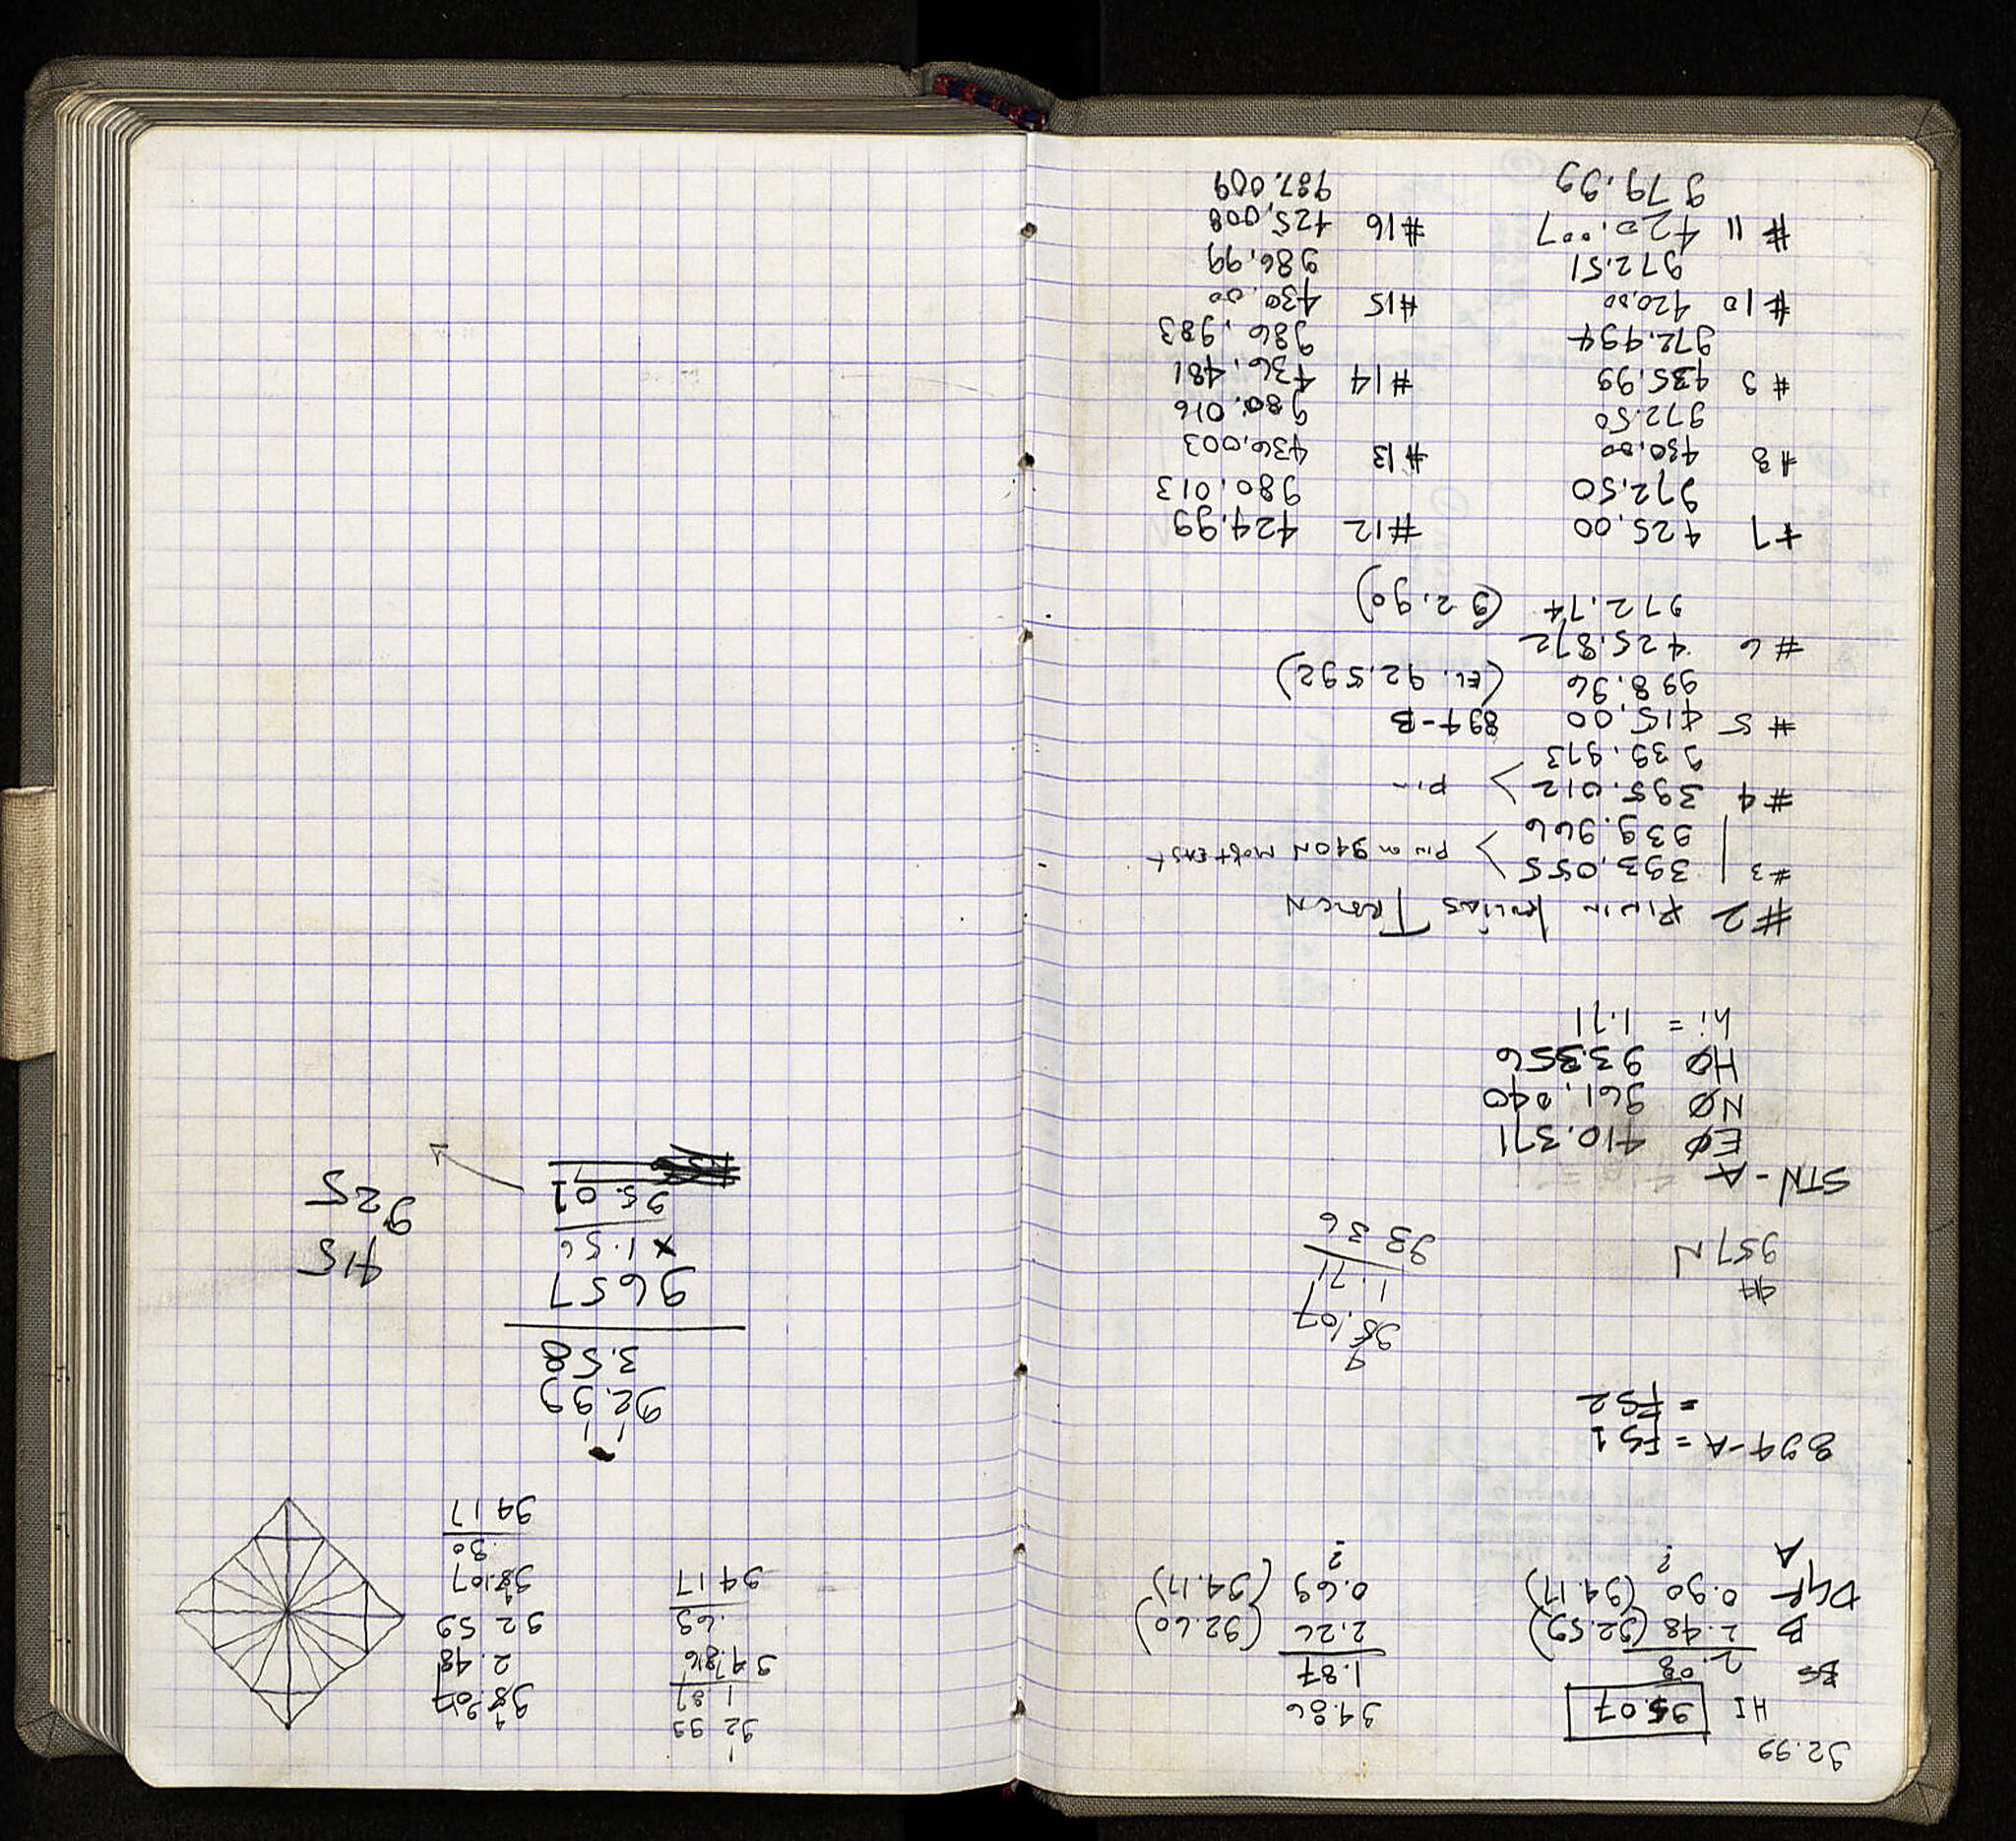 92.99
HI 95.07 94.86
BS 2.08 1.87
B 2.48 (92.59) 2.26 (92.60)
0.90 (94.17) 0.69 (94.17)
A ? ?
894-A = FS1
= FS2
95.107
1.71
93 36
957 N
STN-A
EØ 410.371
NØ 961.040
HØ 93.356
hi = 1.71
#2 PIN IN
#3 393.055 PIN on 940N MOST EAST
939.966
#4 395.012 Pin
939.973
#5 415.00 894-B
998.96 (EL. 92.592)
#6 425.872
972.74 (92.90)
#7 425.00 #12 424.99
972.50 980.013
#8 430.00 #13 436.003
972.50 980.016
#9 435.99 #14 436.481
972.494 986.983
#10 420.00 #15 430.00
972.51 986.99
#11 420.007 #16 425.008
979.99 987.009
92 99
1 87
94.86
.69
94 17
95.107
2.48
92 59
95.107
.90
94 17
92.99
3.58
9657
1.56
95.01
415
925